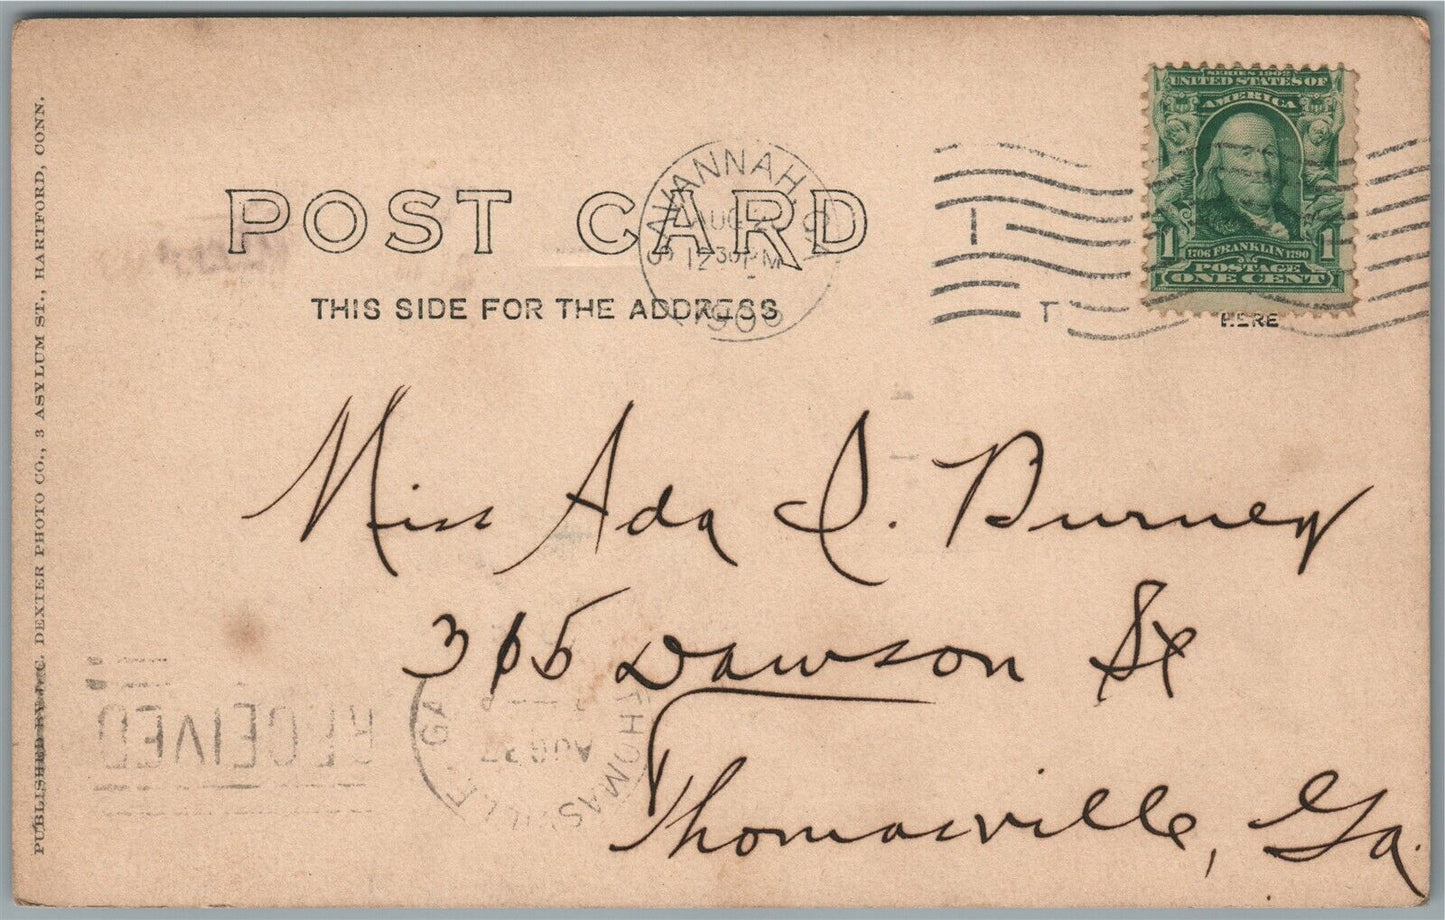 POST CARD
THIS SIDE FOR THE ADDRESS
SAVANNAH
AUG
12 30 PM
1906
SERIES 1902
UNITED STATES OF
AMERICA
1706 FRANKLIN 1790
1 1
POSTAGE
ONE CENT
HERE
Miss Ada I. Burney
315 Dawson St
Thomasville, Ga.
THOMASVILLE GA
AUG 27
RECEIVED
PUBLISHED BY C. DEXTER PHOTO CO., 3 ASYLUM ST., HARTFORD, CONN.